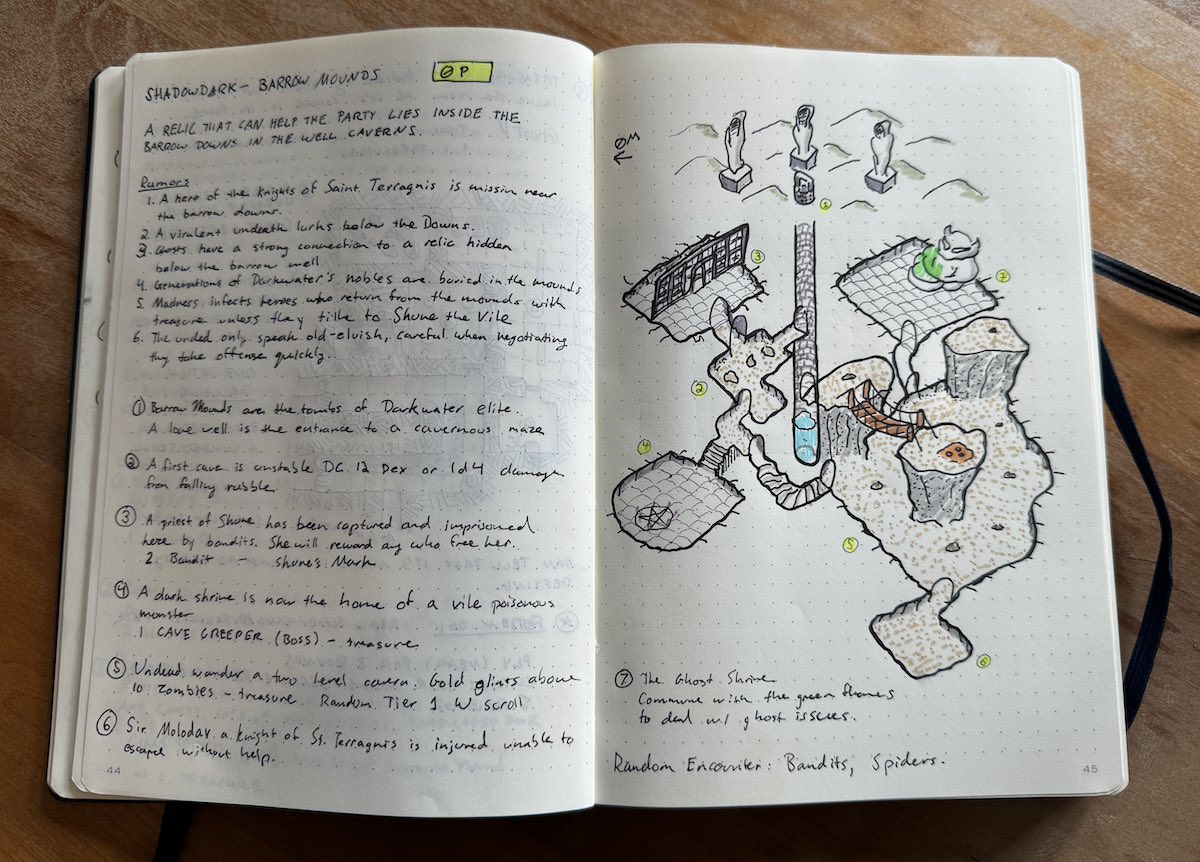 SHADOWDARK - BARROW MOUNDS
P
A RELIC THAT CAN HELP THE PARTY LIES INSIDE THE
BARROW DOWNS IN THE WELL CAVERNS.
Rumors
1. A hero of the Knights of Saint Terragnis is missin near
the barrow downs.
2 A virulent undeath lurks below the Downs.
3. Ghosts have a strong connection to a relic hidden
below the barrow well.
4. Generations of Darkwater's nobles are buried in the mounds
5. Madness infects heroes who return from the mounds with
treasure unless they tithe to Shune the Vile
6. The unded only speak old-elvish, careful when negotiating
they take offense quickly.
① Barrow Mounds are the tombs of Darkwater elite.
A lone well is the entrance to a cavernous maze
② A first cave is unstable DC 12 Dex or 1d4 damage
from falling rubble
③ A priest of Shune has been captured and imprisoned
here by bandits. She will reward any who free her.
2. Bandit - Shune's Mark
④ A dark shrine is now the home of a vile poisonous
monster
1 CAVE CREEPER (BOSS) - treasure
⑤ Undead wander a two level cavern. Gold glints above
10 zombies - treasure. Random Tier 1 W scroll
⑥ Sir Moloday a knight of St. Terragnis is injured unable to
escape without help.
44
1
3
7
2
4
5
6
⑦ The Ghost Shrine
Commune with the green flames
to deal w/ ghost issues.
Random Encounter: Bandits, Spiders.
45